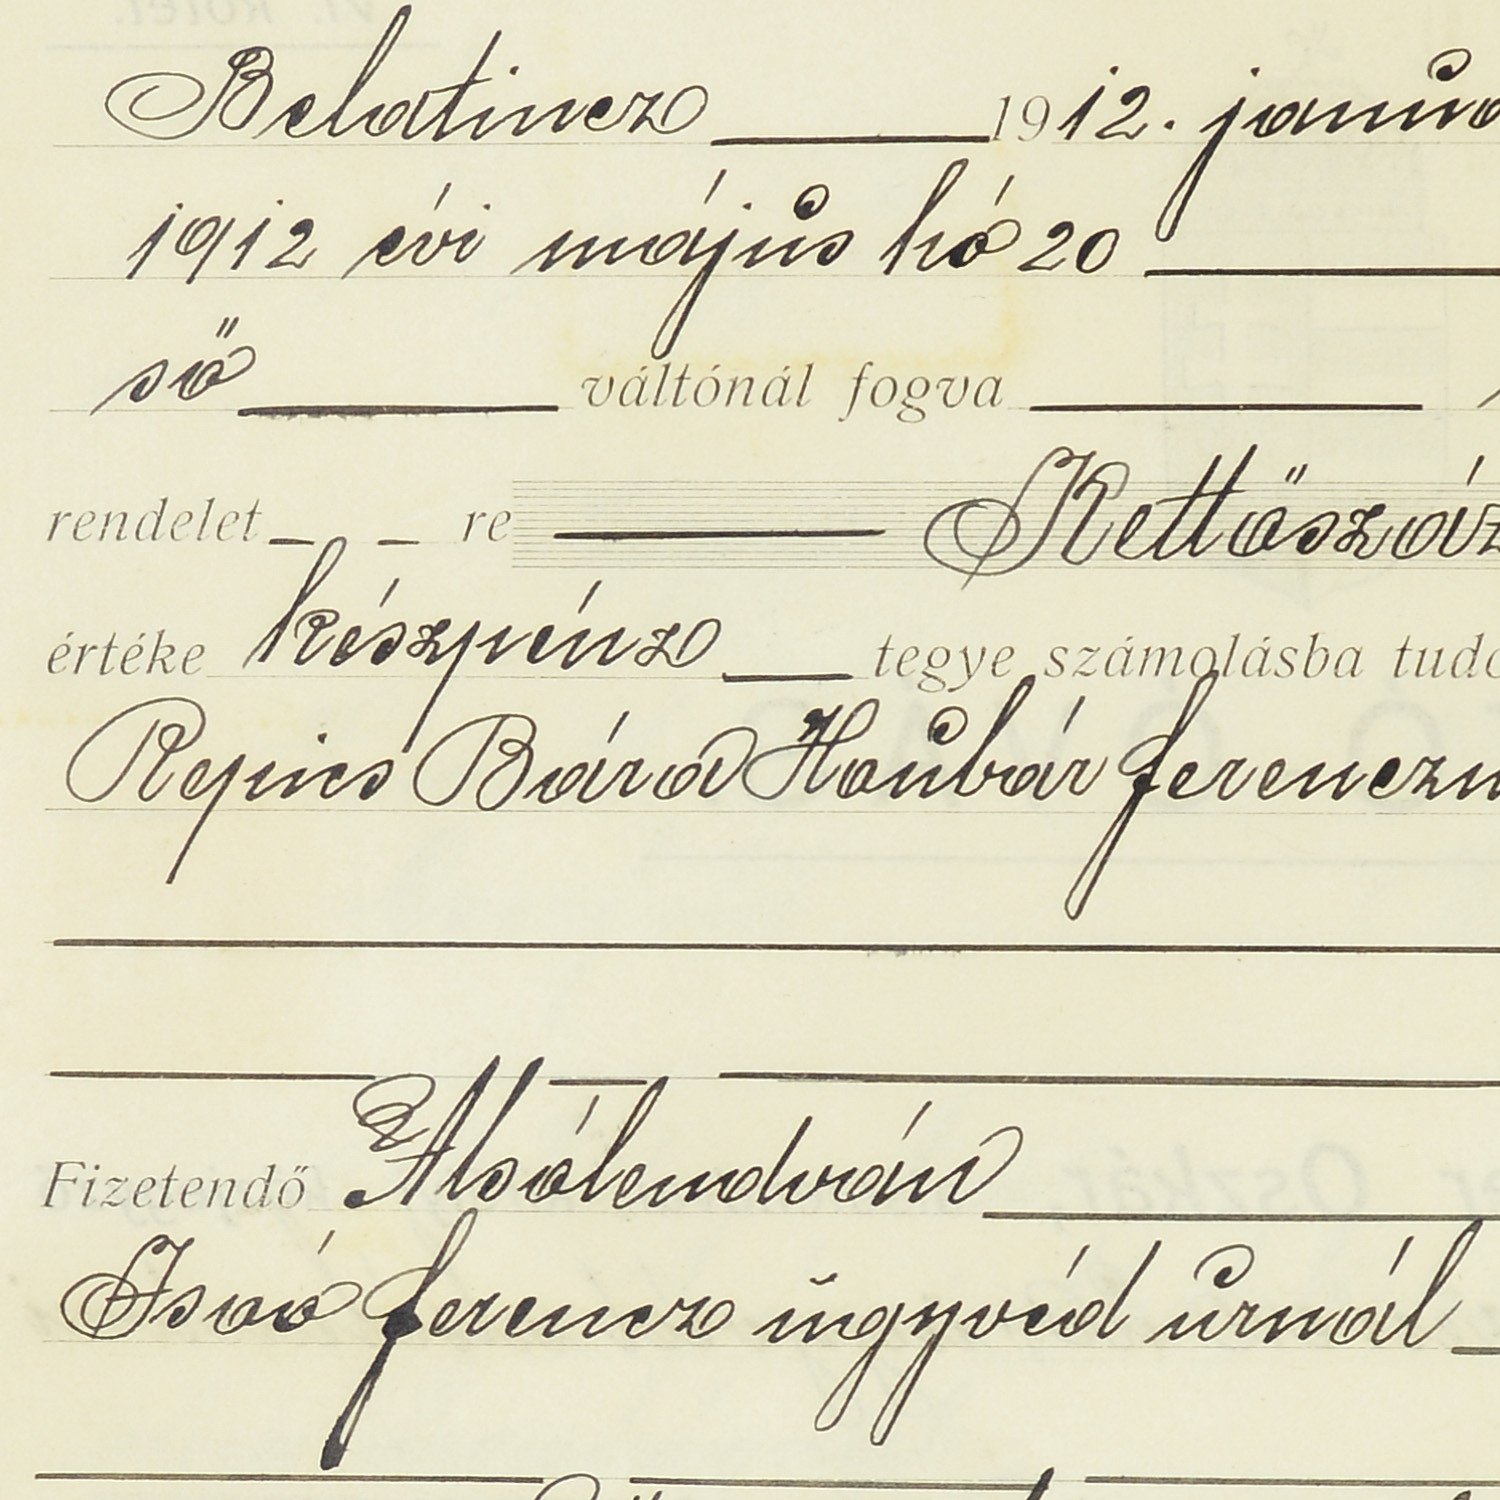 Belatincz 1912. janua
1912 évi május hó 20
ső váltónál fogva
rendelet re Kettőszáz
értéke készpénz tegye számolásba tudo
Repics Bára Houbár Ferenczn
Fizetendő Alsólendván
Isoó Ferencz ügyvéd úrnál